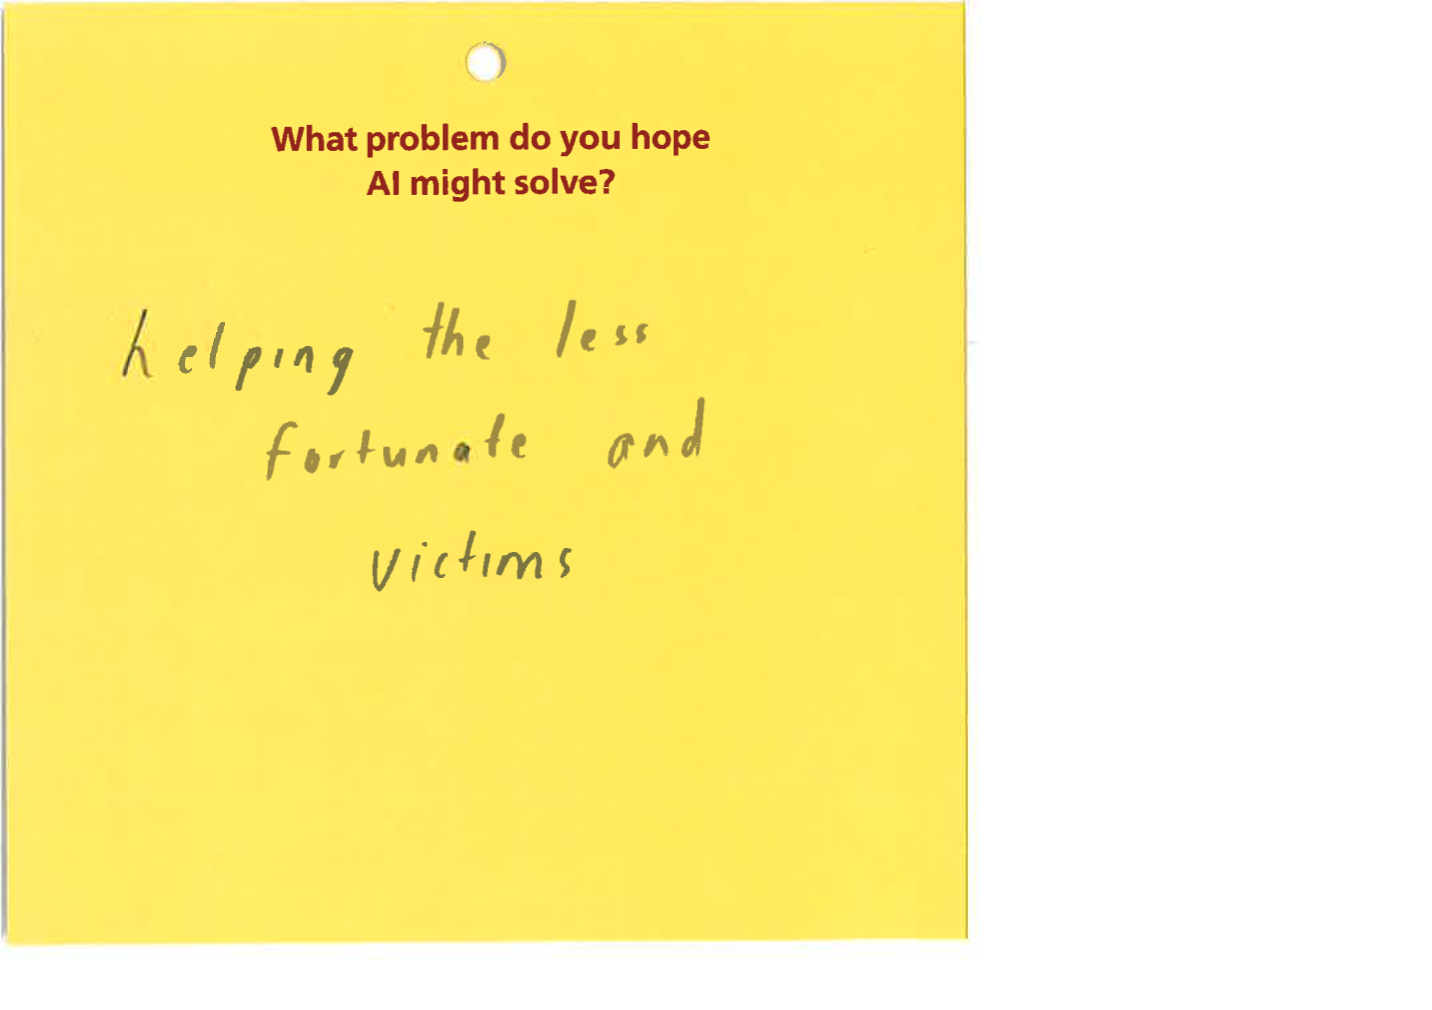 What problem do you hope
AI might solve?
helping the less
fortunate and
victims